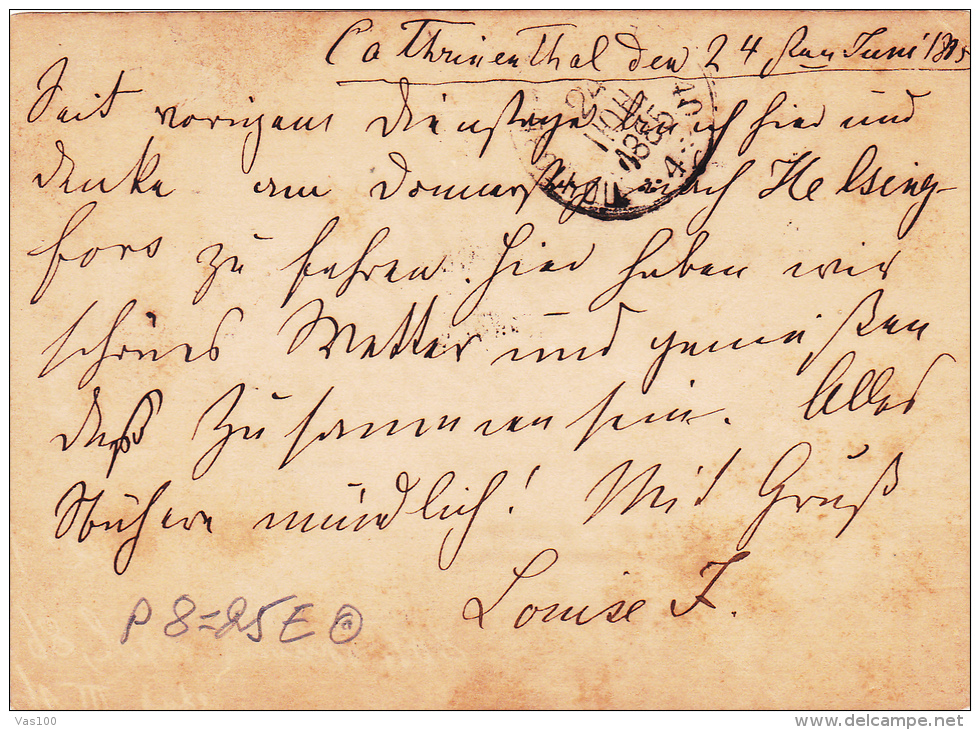 Cathrinenthal den 24 sten Juni 1885
Seit vorigem Dienstage bin ich hier und
denke am Donnerstage nach Helsing-
fors zu fahren. Hier haben wir
schönes Wetter und genießen
daß Zusammensein. Alles
mündlich! Mit Gruß
Louise F.
24
ІЮН
1885
P 8=25E
Vas100
delcampe.net